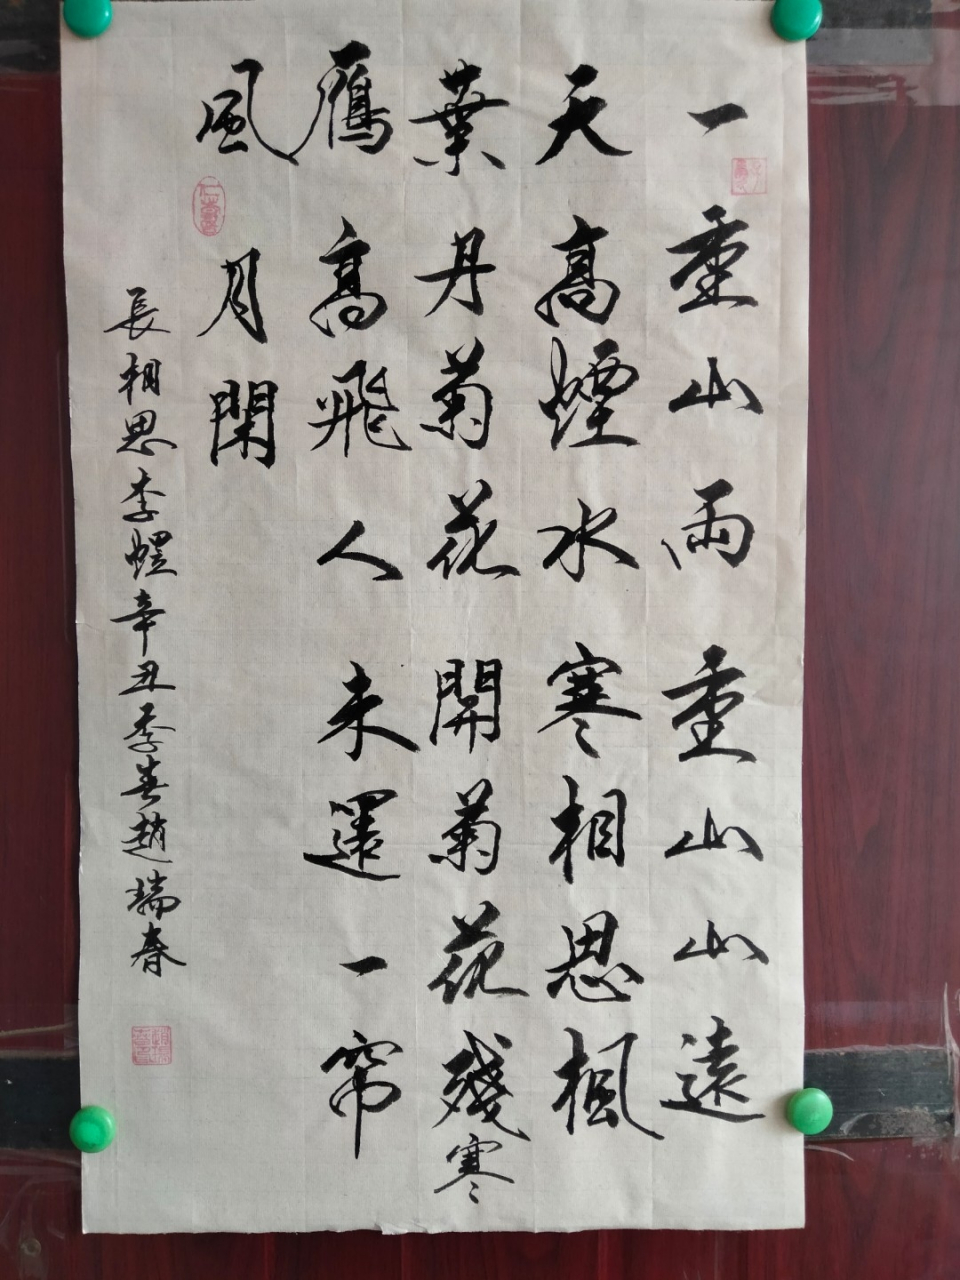 一重山兩重山山遠
天高煙水寒相思楓
葉丹菊花開菊花殘寒
鴈高飛人未還一帘
風月閑
仁壽
長相思李煜辛丑季春趙瑞春